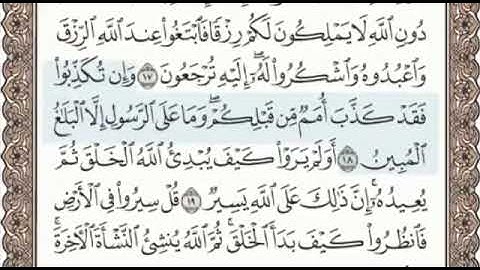 دُونِ ٱللَّهِ لَا يَمۡلِكُونَ لَكُمۡ رِزۡقٗا فَٱبۡتَغُواْ عِندَ ٱللَّهِ ٱلرِّزۡقَ
وَٱعۡبُدُوهُ وَٱشۡكُرُواْ لَهُۥٓۖ إِلَيۡهِ تُرۡجَعُونَ ١٧ وَإِن تُكَذِّبُواْ
فَقَدۡ كَذَّبَ أُمَمٞ مِّن قَبۡلِكُمۡۖ وَمَا عَلَى ٱلرَّسُولِ إِلَّا ٱلۡبَلَٰغُ
ٱلۡمُبِينُ ١٨ أَوَلَمۡ يَرَوۡاْ كَيۡفَ يُبۡدِئُ ٱللَّهُ ٱلۡخَلۡقَ ثُمَّ
يُعِيدُهُۥٓۚ إِنَّ ذَٰلِكَ عَلَى ٱللَّهِ يَسِيرٞ ١٩ قُلۡ سِيرُواْ فِي ٱلۡأَرۡضِ
فَٱنظُرُواْ كَيۡفَ بَدَأَ ٱلۡخَلۡقَۚ ثُمَّ ٱللَّهُ يُنشِئُ ٱلنَّشۡأَةَ ٱلۡأٓخِرَةَۚ